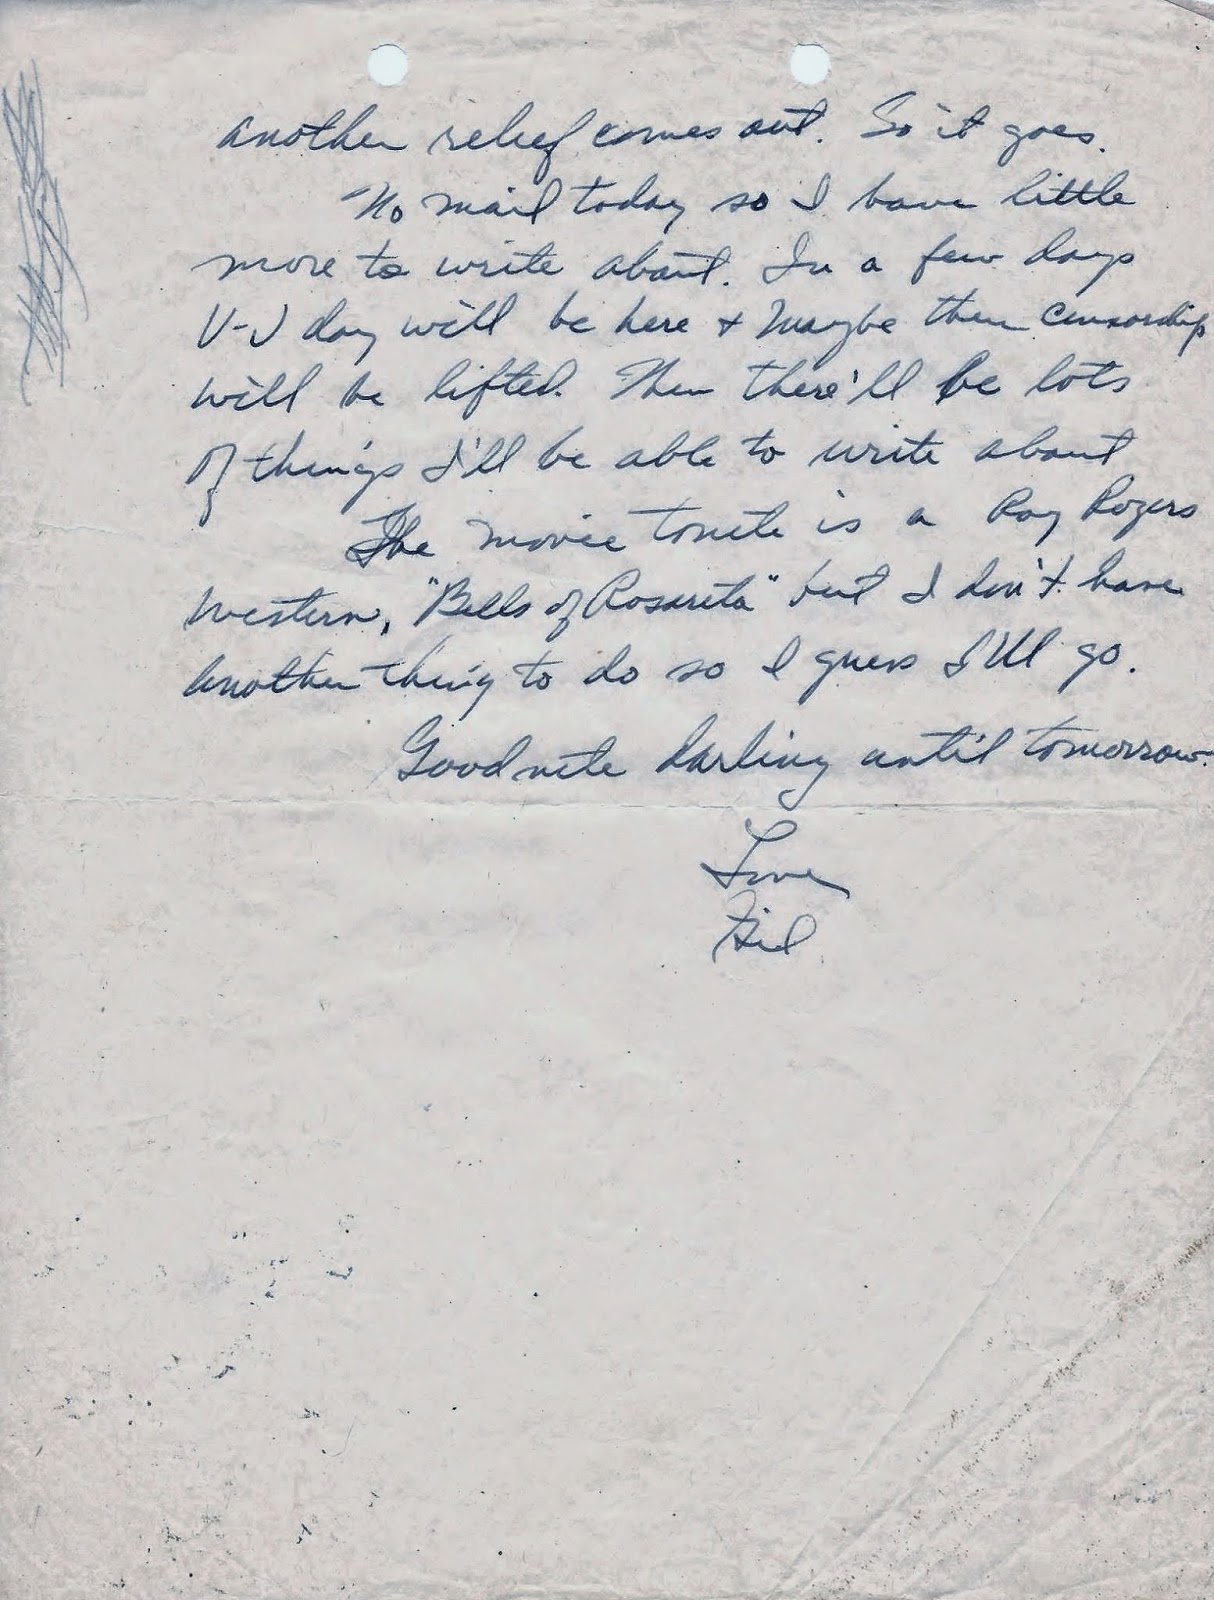 another relief comes out. So it goes.
No mail today so I have little
more to write about. In a few days
V-J day will be here + maybe then censorship
will be lifted. Then there'll be lots
of things I'll be able to write about
The movie tonite is a Roy Rogers
western, "Bells of Rosarita" but I don't have
another thing to do so I guess I'll go.
Goodnite darling until tomorrow.
Love